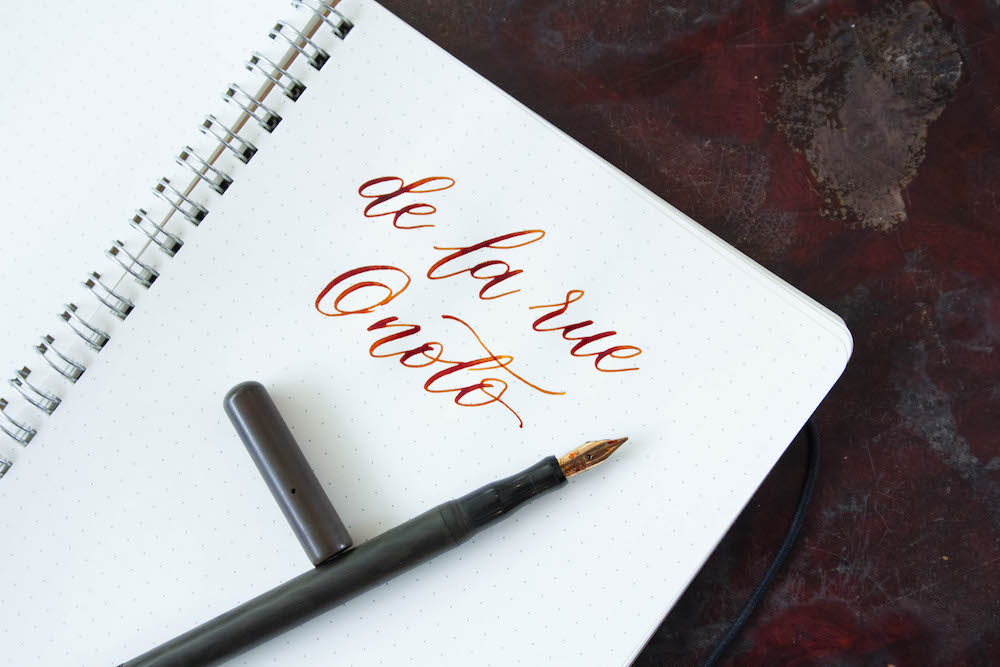 de la rue
Onoto